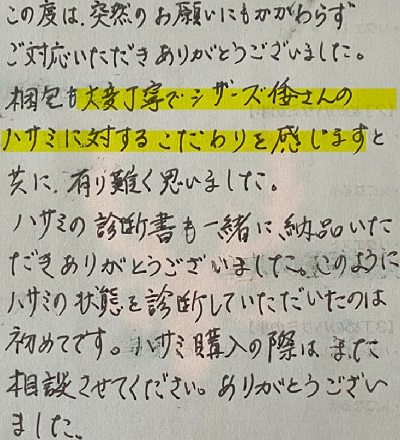 この度は、突然のお願いにもかかわらず
ご対応いただきありがとうございました。
梱包も大変丁寧でシザーズ倭さんの
ハサミに対するこだわりを感じますと
共に、有り難く思いました。
ハサミの診断書も一緒に納品いた
だきありがとうございました。このように
ハサミの状態を診断していただいたのは
初めてです。ハサミ購入の際はまた
相談させてください。ありがとうござい
ました。